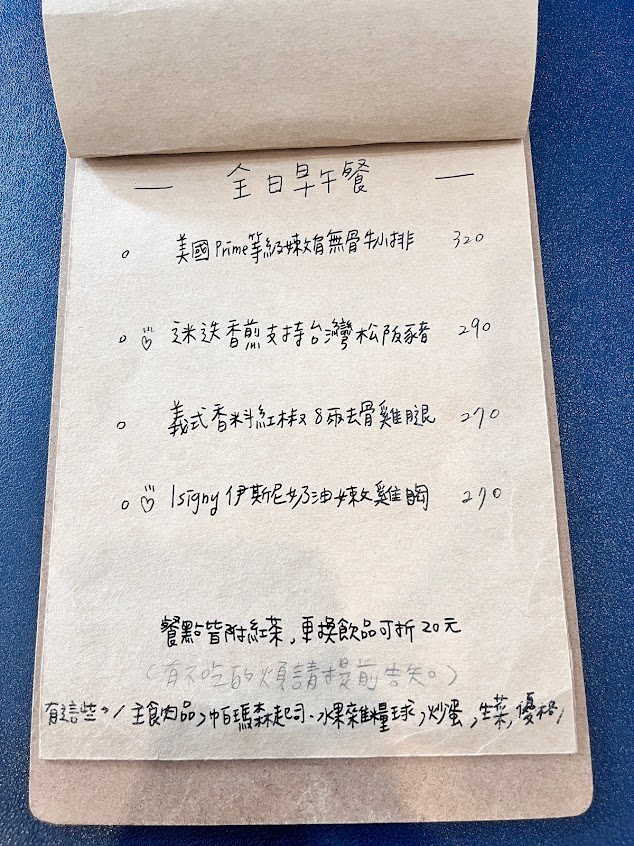 — 全日早午餐 —
。 美國Prime等級嫩肩無骨牛小排 320
。 迷迭香煎支持台灣松阪豬 290
。 義式香料紅椒8兩去骨雞腿 270
。 Isigny伊斯尼奶油嫩雞胸 270
餐點皆附紅茶,更換飲品可折20元
(有不吃的煩請提前告知。)
有這些~/主食肉品、帕瑪森起司、水果雜糧球、炒蛋、生菜,優格/